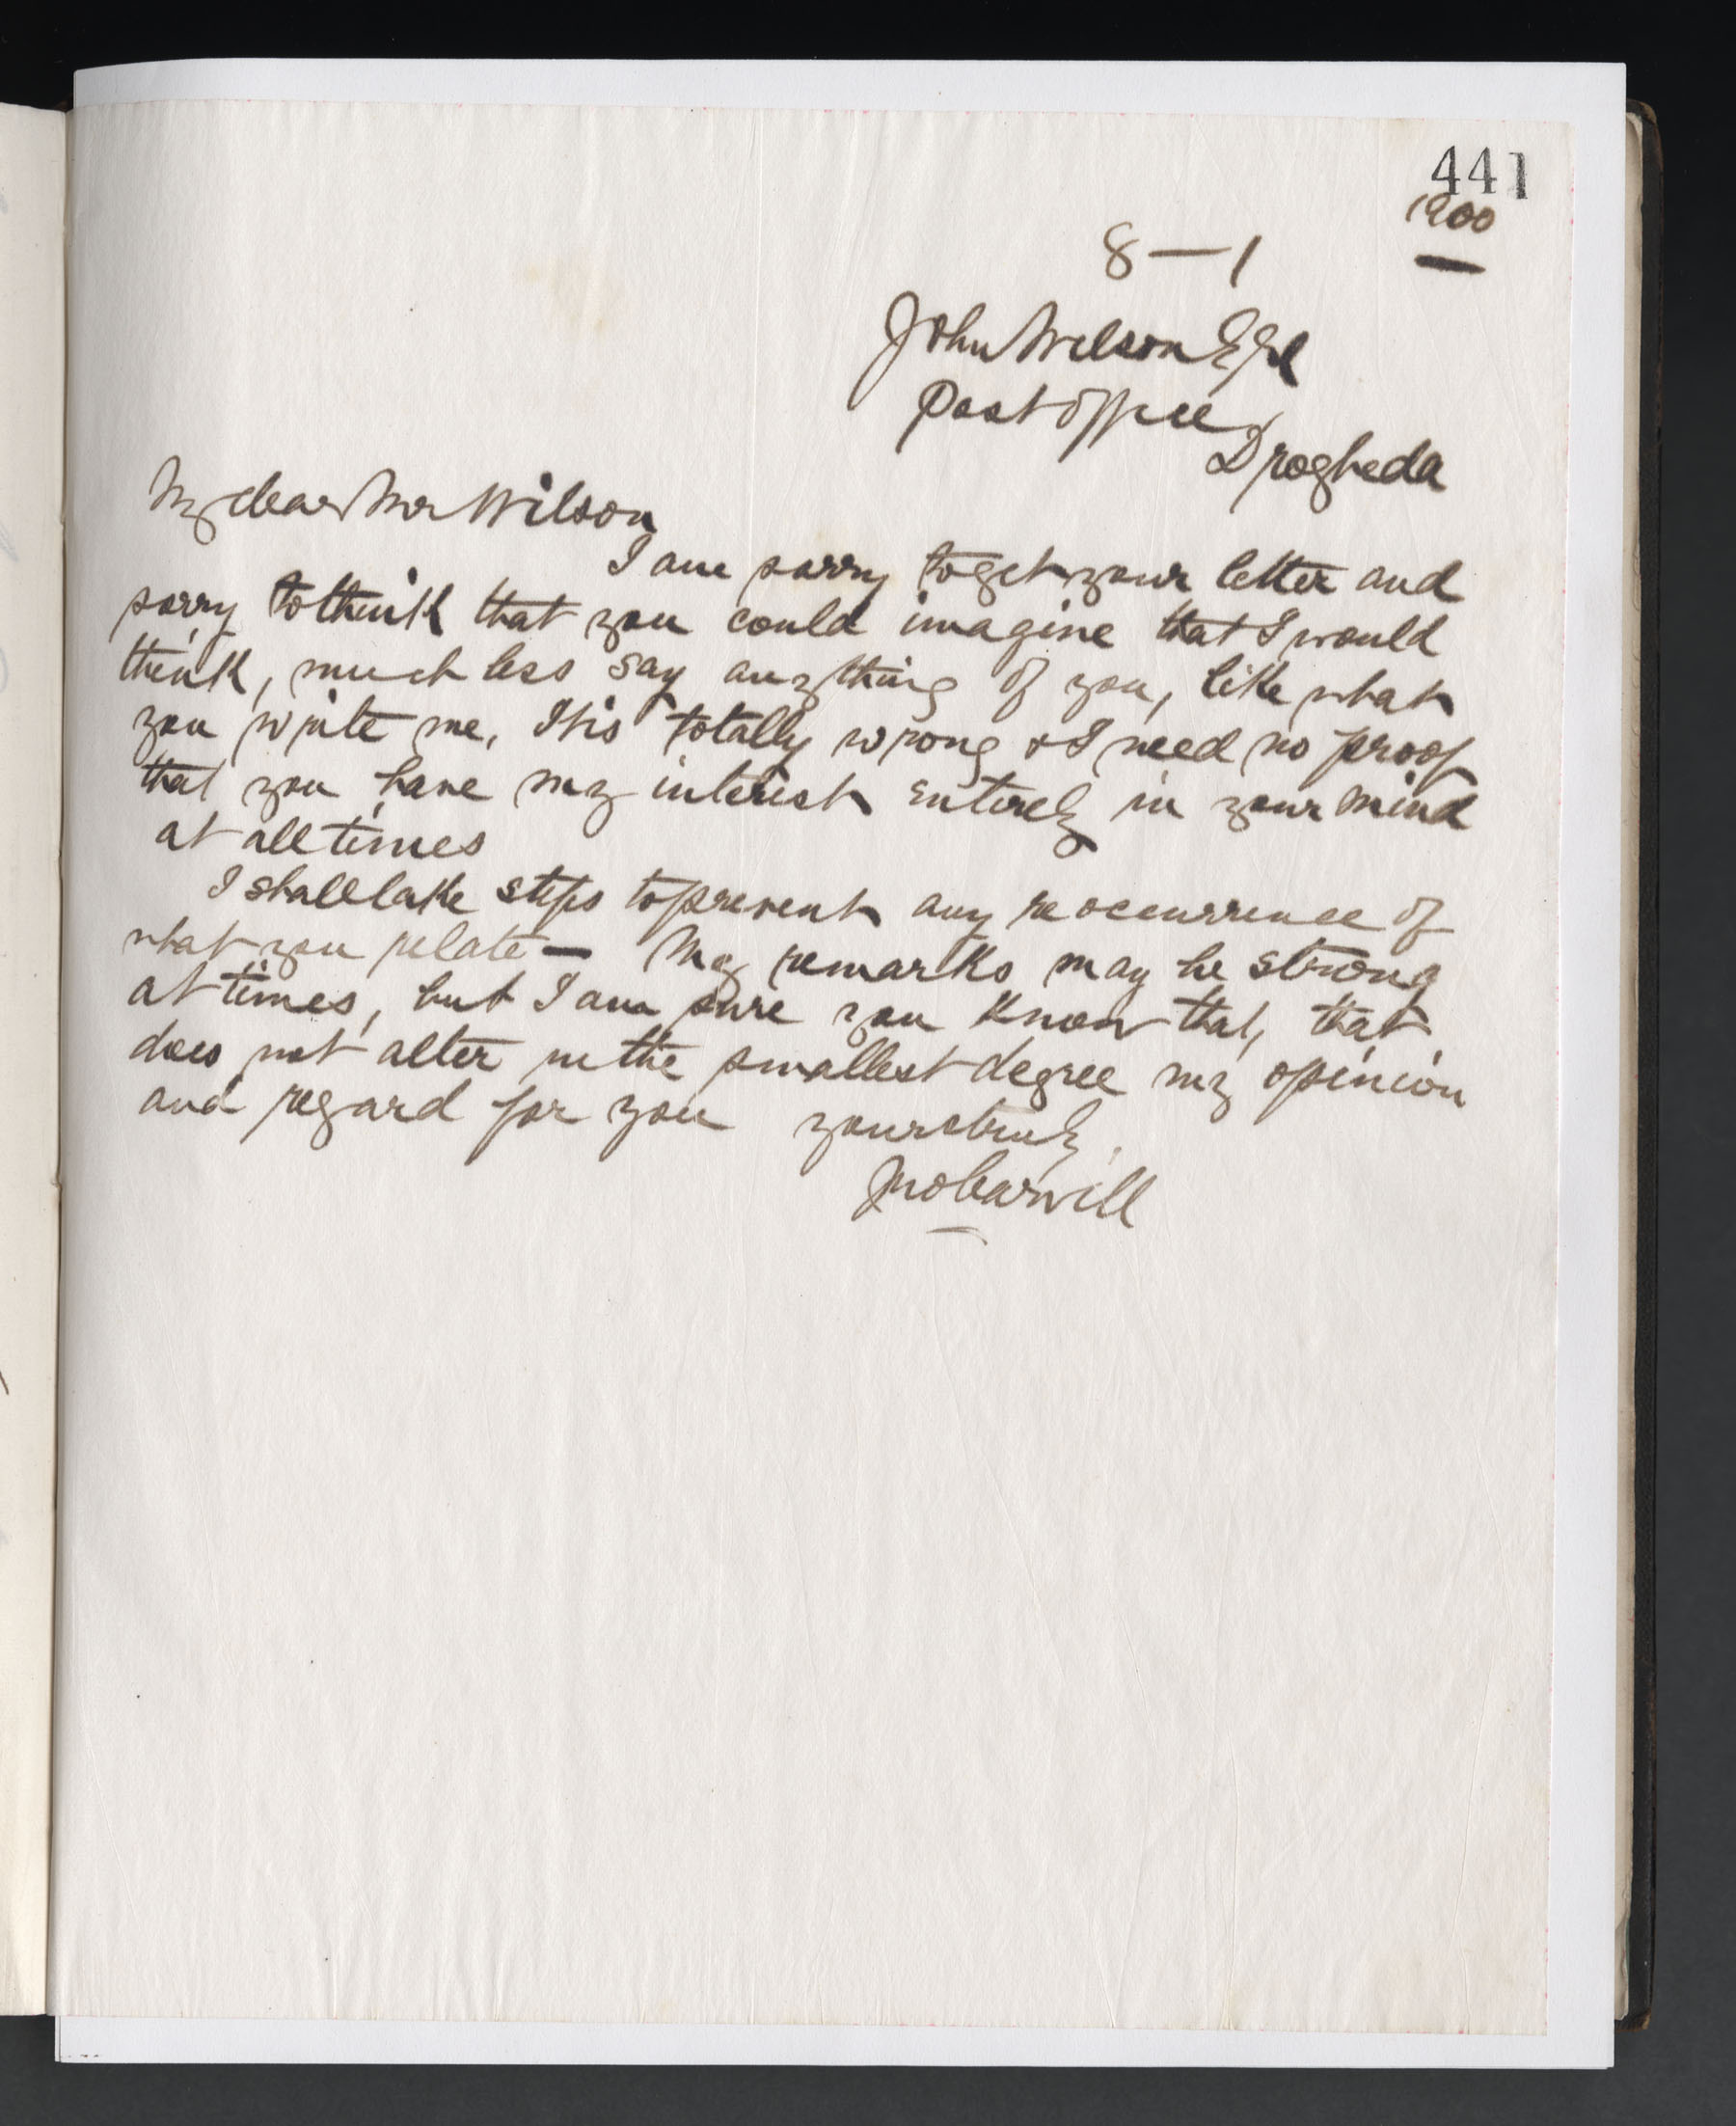 441
1900
8 — 1
John Wilson Esq
Post Office
Drogheda
My dear Mr Wilson
I am sorry to get your letter and
sorry to think that you could imagine that I would
think, much less say anything of you, like what
you write me, It is totally wrong & I need no proof
that you have my interest entirely in your mind
at all times
I shall take steps to prevent any reoccurrence of
what you relate — My remarks may be strong
at times, but I am sure you know that, that
does not alter in the smallest degree my opinion
and regard for you yours truly